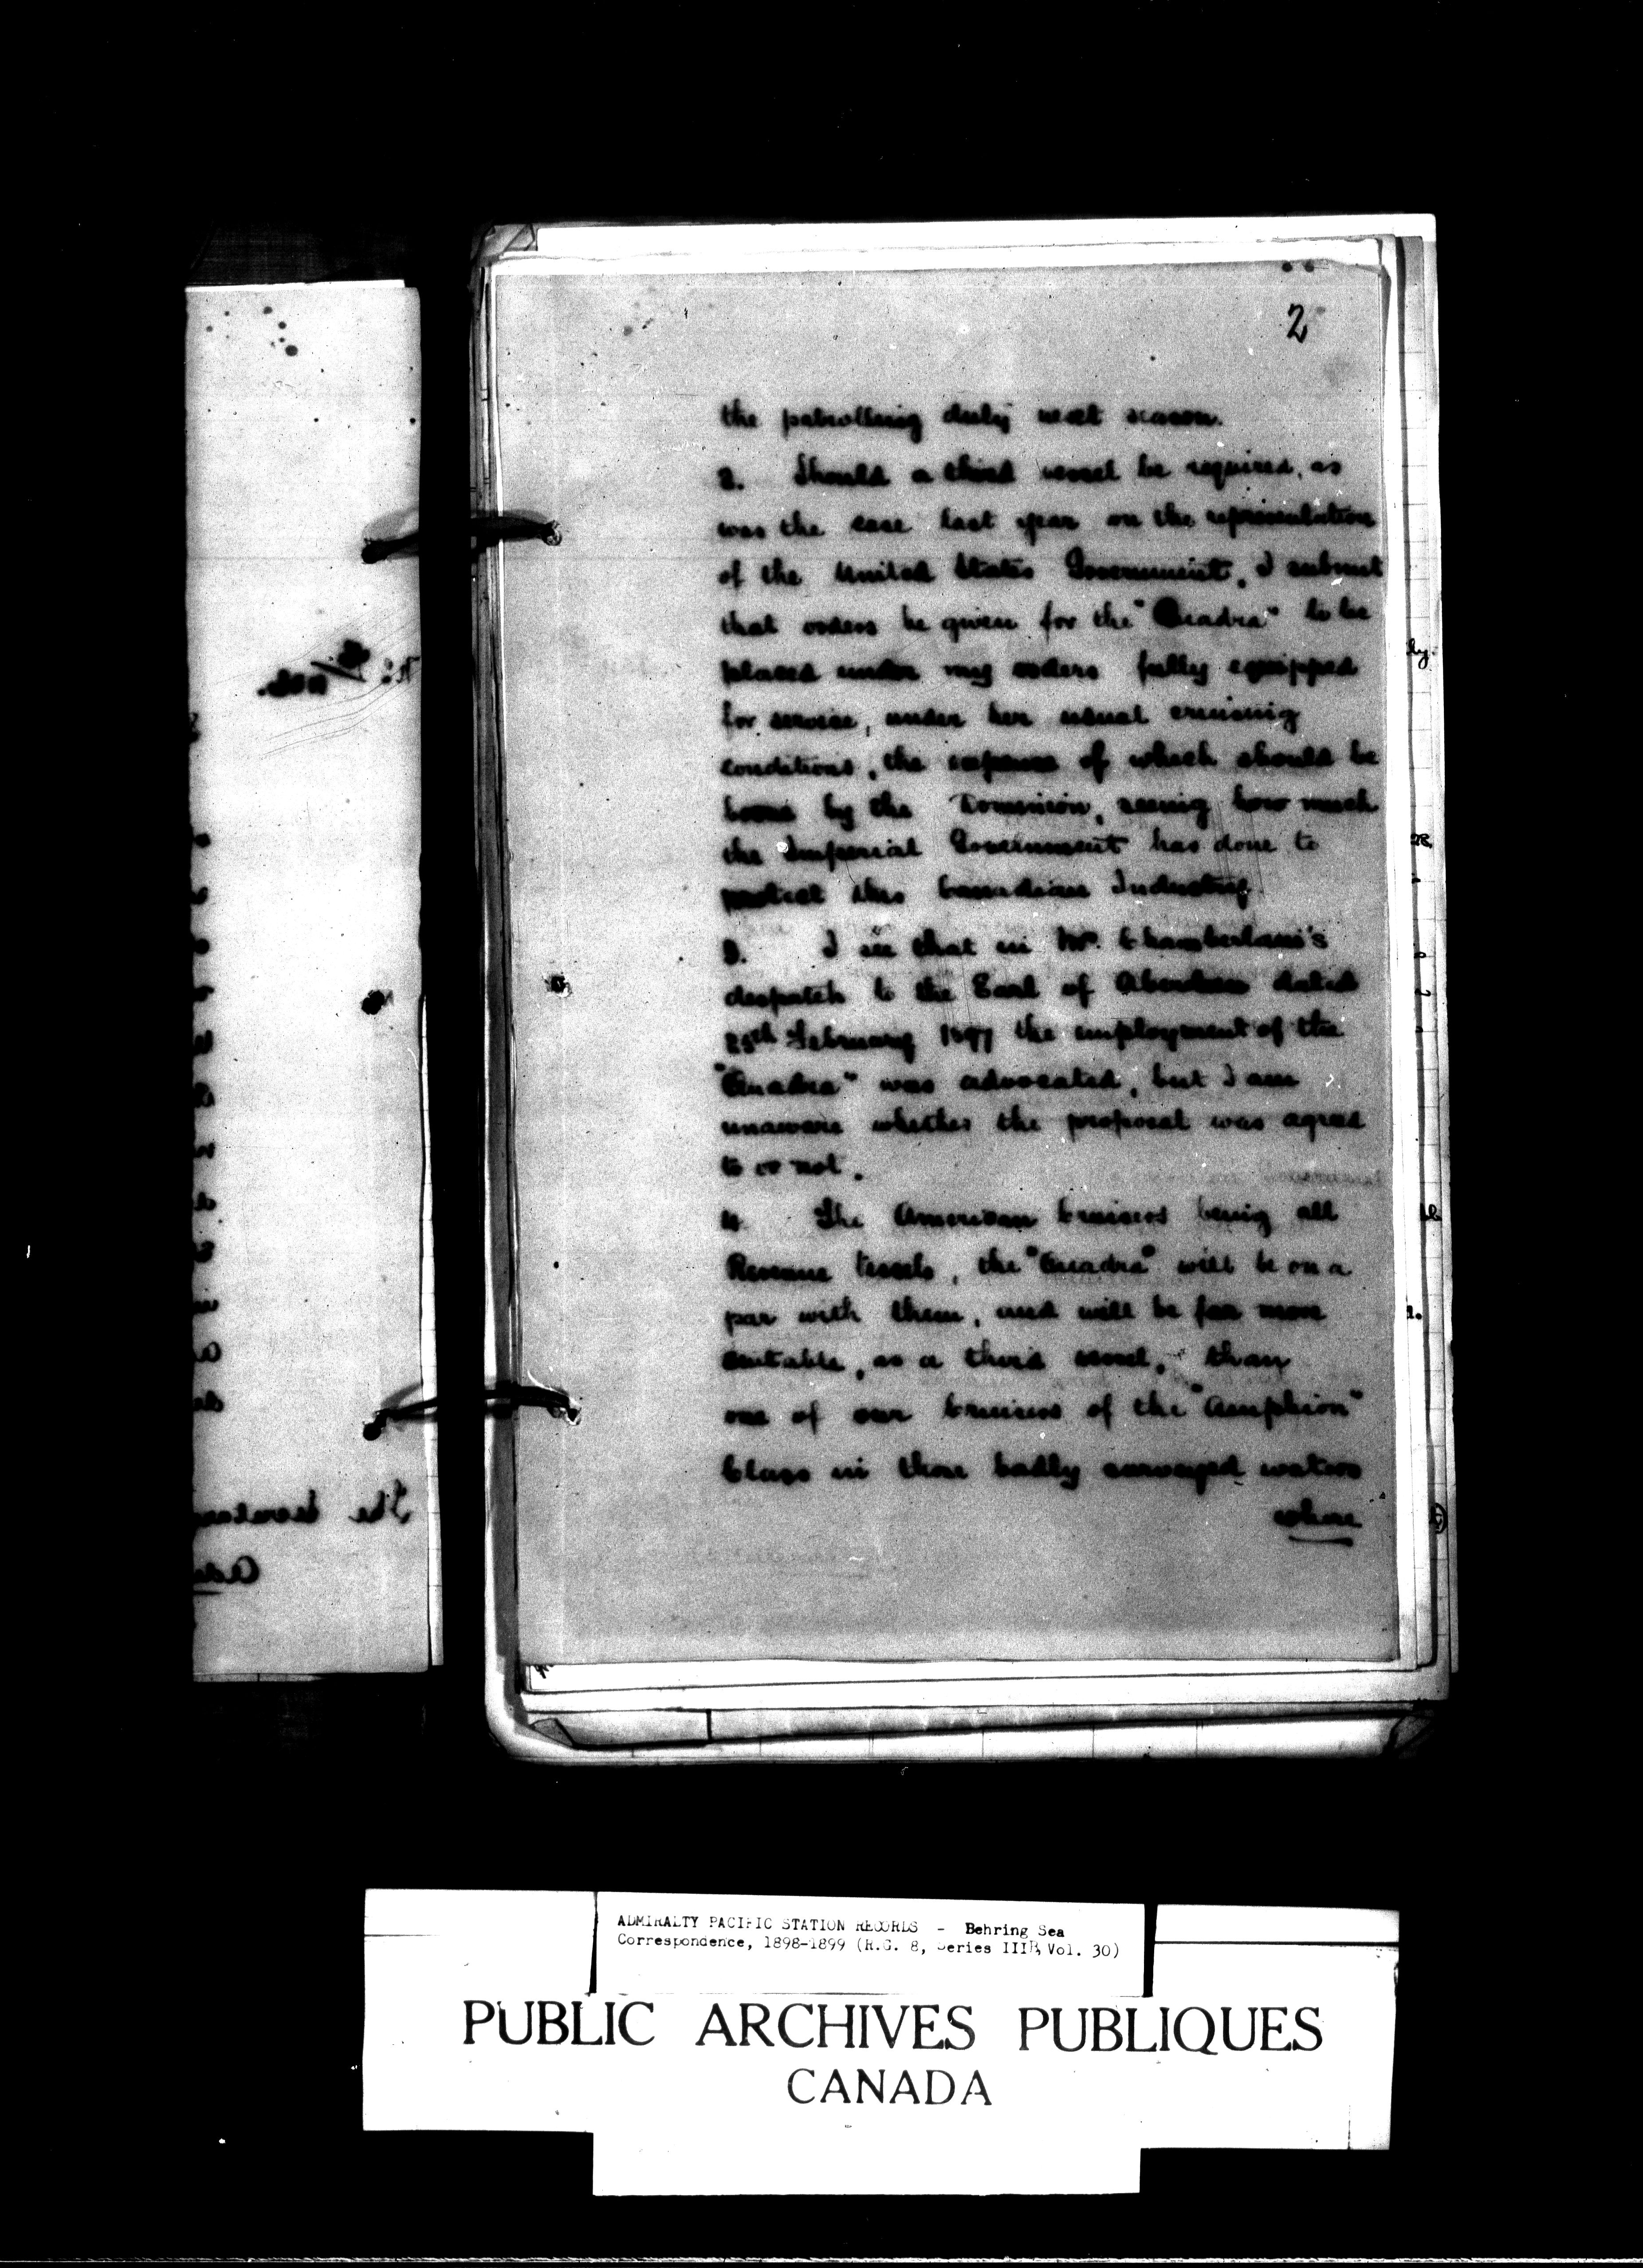 2
the patrolling duty next season.
2. Should a third vessel be required, as
was the case last year on the representation
of the United States Government, I submit
that orders be given for the "Quadra" to be
placed under my orders fully equipped
for service, under her usual cruising
conditions, the expense of which should be
borne by the Dominion, seeing how much
the Imperial Government has done to
protect this Canadian Industry.
3. I see that in Mr. Chamberlain's
despatch to the Earl of Aberdeen dated
25th February 1897 the employment of the
"Quadra" was advocated, but I am
unaware whether the proposal was agreed
to or not.
4. The American Cruisers being all
Revenue Vessels, the "Quadra" will be on a
par with them, and will be far more
suitable, as a third vessel, than
one of our Cruisers of the "Amphion"
Class in those badly surveyed waters
where
ADMIRALTY PACIFIC STATION RECORDS - Behring Sea
Correspondence, 1898-1899 (R.G. 8, Series IIIB, Vol. 30)
PUBLIC ARCHIVES PUBLIQUES
CANADA